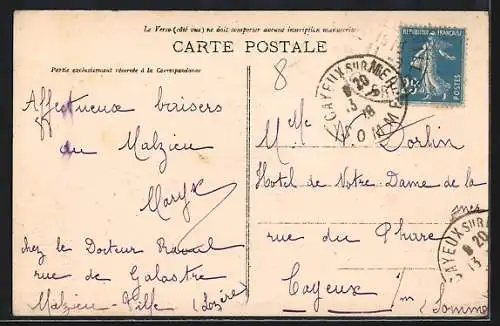 Le Verso (côté vue) ne doit comporter aucune inscription manuscrite
CARTE POSTALE
Partie exclusivement réservée à la Correspondance
8
REPUBLIQUE FRANÇAISE
25
POSTES
CAYEUX SUR MER
SOMME
Affectueux baisers
du Malzieu
chez le Docteur
rue de Galastre
Malzieu-Ville (Lozère)
Mlle Dorlin
Hotel de Notre-Dame de la
mer
rue du Phare
Cayeux s/m (Somme)
CAYEUX SUR